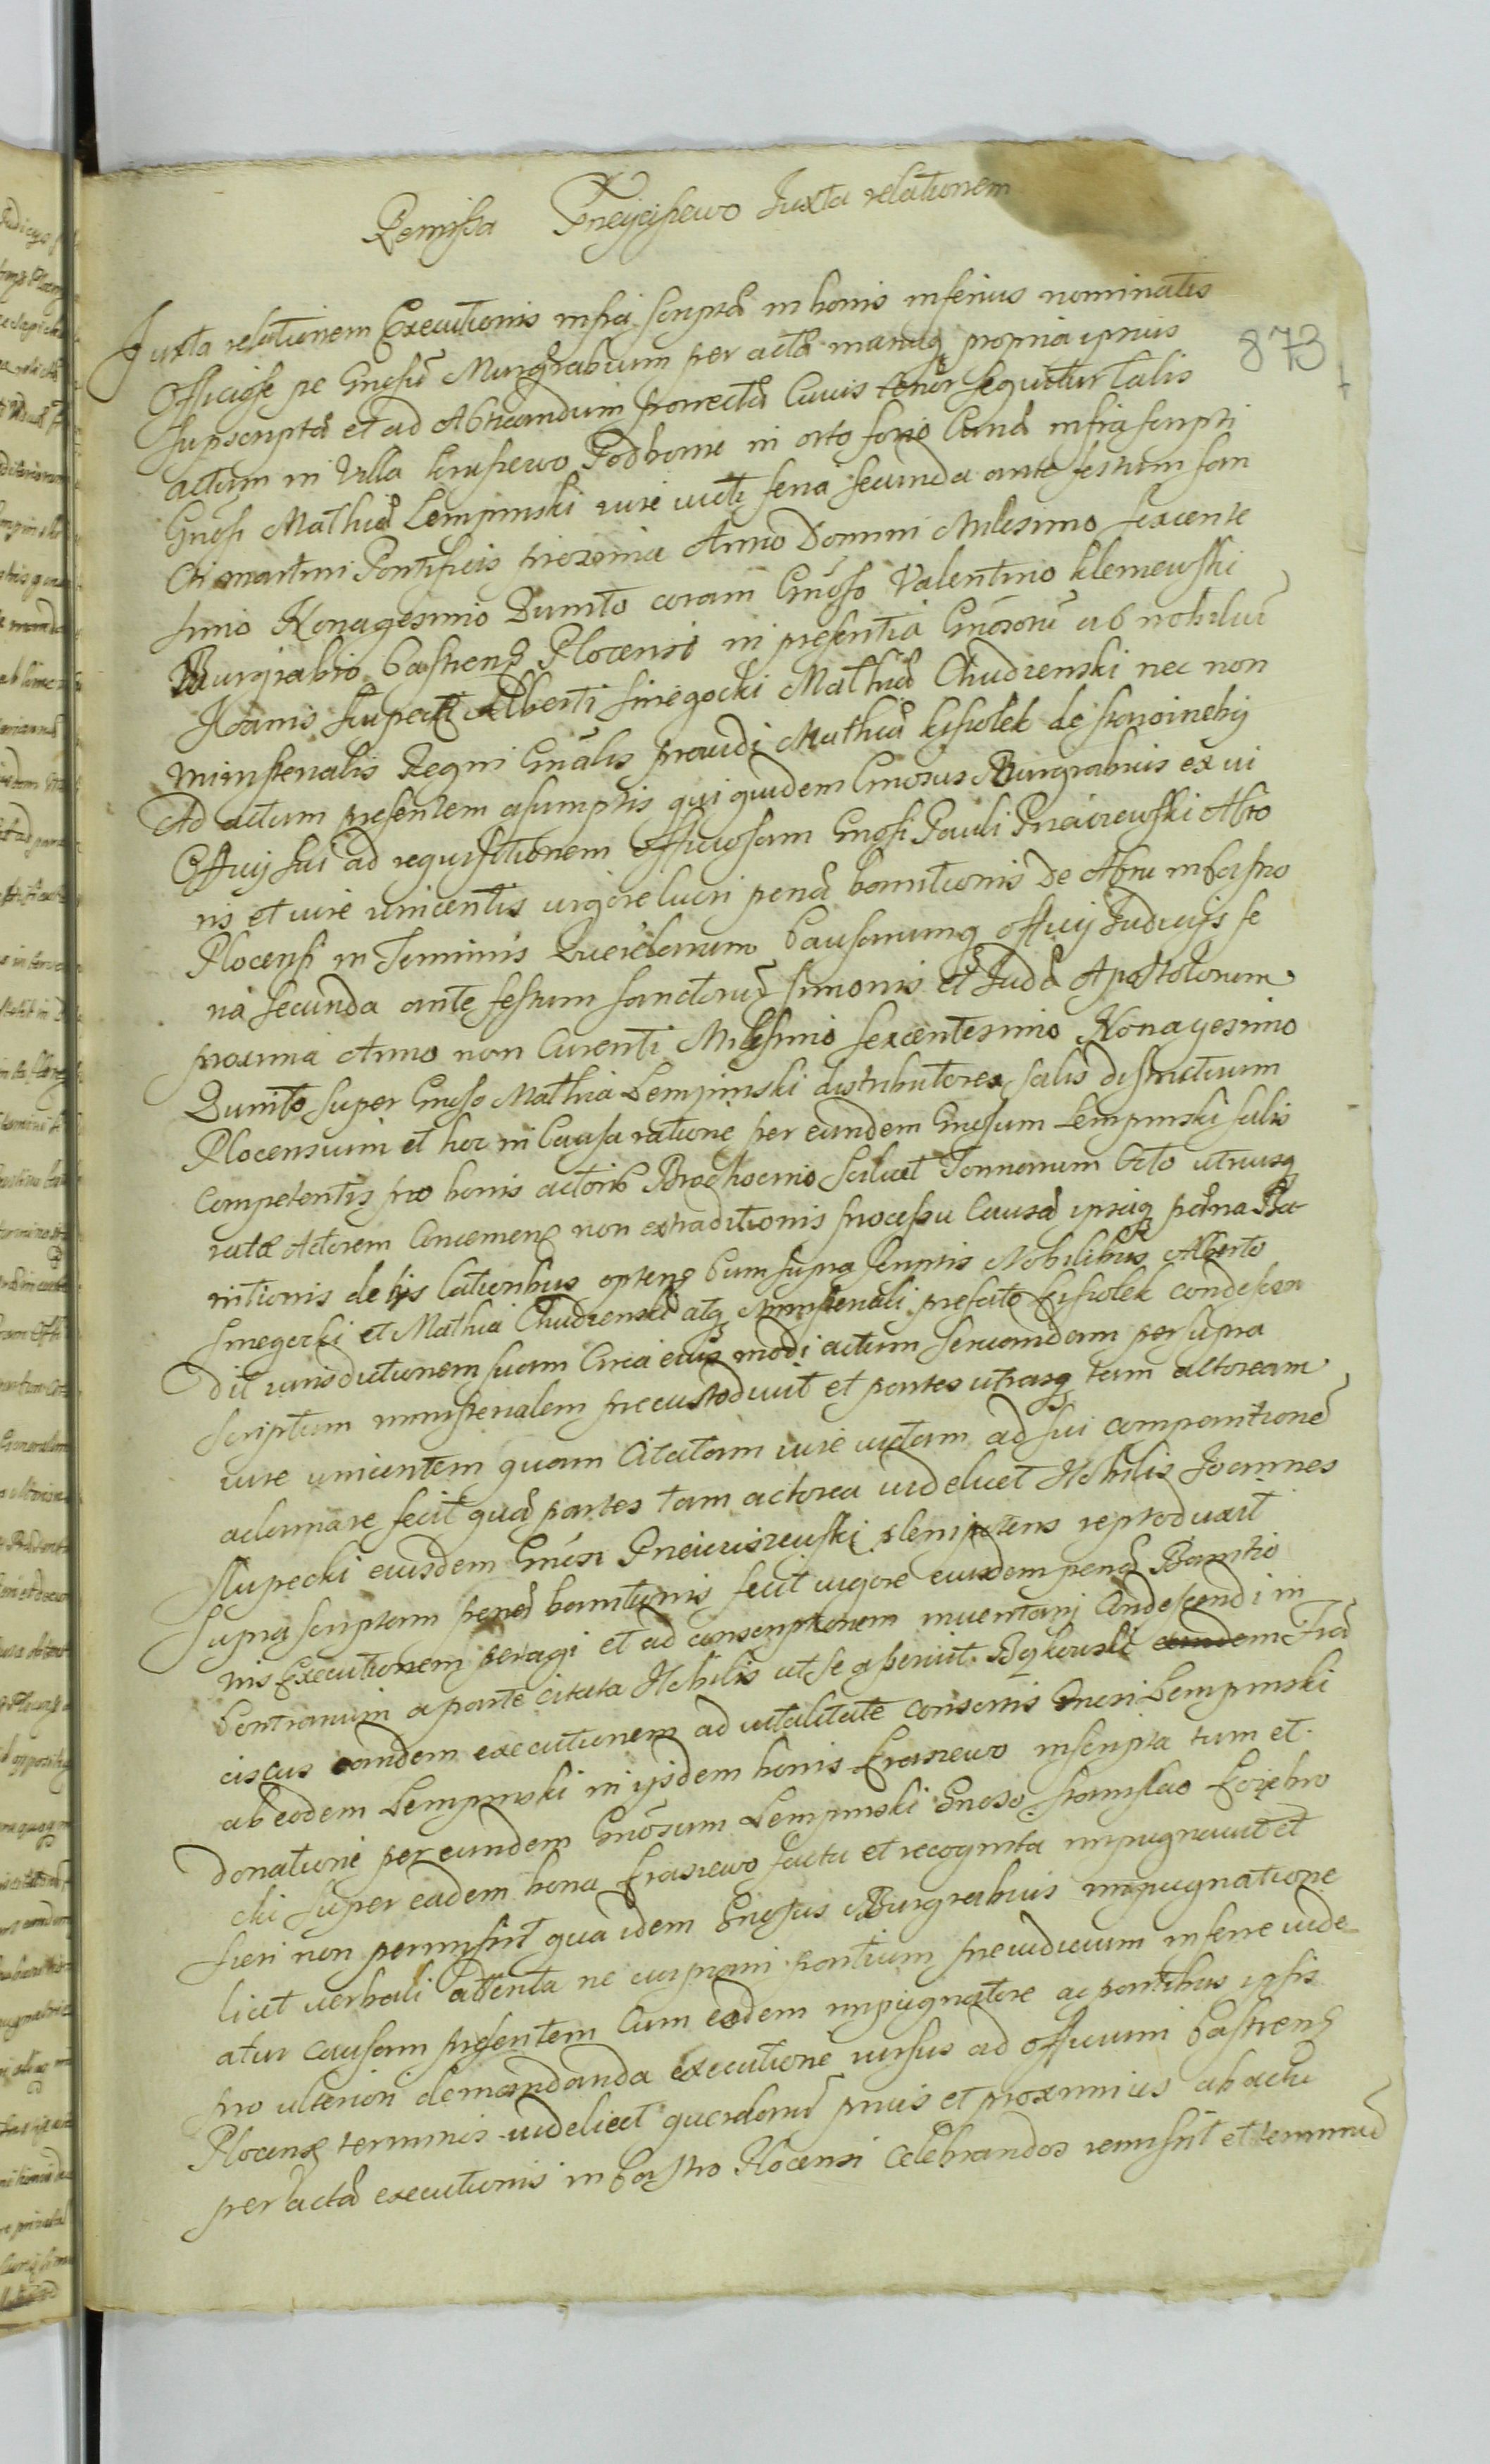 Remissa Pneyeysewo Iuxta relationem
873
Iuxta relationem Executionis infra scriptã in bonis inferius nominatis
Officiose pe Gnosũ Murgrabium per actã manuq propria ipsius
supscriptã et ad Acticandum porrectã Cuius tenor sequitur talis
actum in Villa Krasiewo Podborne in orto forio Curiã infrascripti
Gnosi Mathiã Lempinski iure victi feria secunda ante festum san
cti martini Pontificis proxima Anno Domini Milesimo sexcente
simo Nonagesimo Quinto coram Gnoso Valentino Klemewski
Burgrabio Castrens Plocensi in presentia Gnosorũ ab nobiliũ
Ioanis Slupecki Alberti Sniegocki Mathiã Chudzenski nec non
ministerialis Regni Gnalis providi Mathiã Kisiolek de
Ad actum presentem asumptis qui quidem Gnosus Burgrabius ex vi
Officij sui ad requisitionem officiosam Gnosi Pauli Acto
ris et iure vincentis vigore lucri penã banitionis de Actu in Castro
Plocensi in Terminis Querelarum Causarumq officij Iudicijs fe
ria secunda ante festum sanctorũ Simonis et Iudã Apostolorum
proxima Anno non Curenti Milesimo sexcentesimo Nonagesimo
Quinto super Gnoso Mathia Lempinski distributores salis districtuum
Plocensium et hoc in Causa ratione per eundem Gnosum Lempinski salis
competentis pro bonis actoris Brochocino scilicet Tonnarum Octo utriusq
ratã Actorem Concernens non extraditionis processu Causã ipsiuq pœna Ba-
nitionis de ijs lationibus optens Cum supra scriptis Nobilibus Alberto
Sniegocki et Mathia Chudzenski atq Ministeriali prefato Kisiolek condescen
dit iurisdictionem suam Circa eius modi actum servandam per supra
scriptum ministerialem precustodivit et partes utrasq tam actoream
iure vincentem quam Citatam iure victam ad sui comparitionẽ
aclamare fecit quã partes tam actorea videlicet Nobilis Ioannes
Slupecki eiusdem Gnosi plenipotens reproduxit
supra scriptam penã banitionis fecit vigore eiusdem penã Banitio
nis Executionem peragi et ad conscriptionem inventarij Condescendi in
Contrarium a parte citata Nobilis ut se aseruit Bykowski eundem Frã
ciscus eandem executionem ad vitalitate consortis Gnosi Lempinski
ab eodem Lempinski in ijsdem bonis Krasiewo inscripta tum et
donatione per eundem Gnosum Lempinski Gnoso Stanislao Kozebro
cki super eadem bona Krasiewo facta et recognita impugnavit et
fieri non permisit qua idem Gnosus Burgrabius impugnatione
licet verbali attenta ne cuipiam partium preiudicium inferre vide
atur causam presentem cum eadem impugnatore ac partibus ipsis
pro ulteriori demandanda executione rursus ad officium Castrens
Plocens terminis videlicet querelarũ prius et proximius ab actu
peractã executionis in Castro Plocensi celebrandos remisit et terminũ